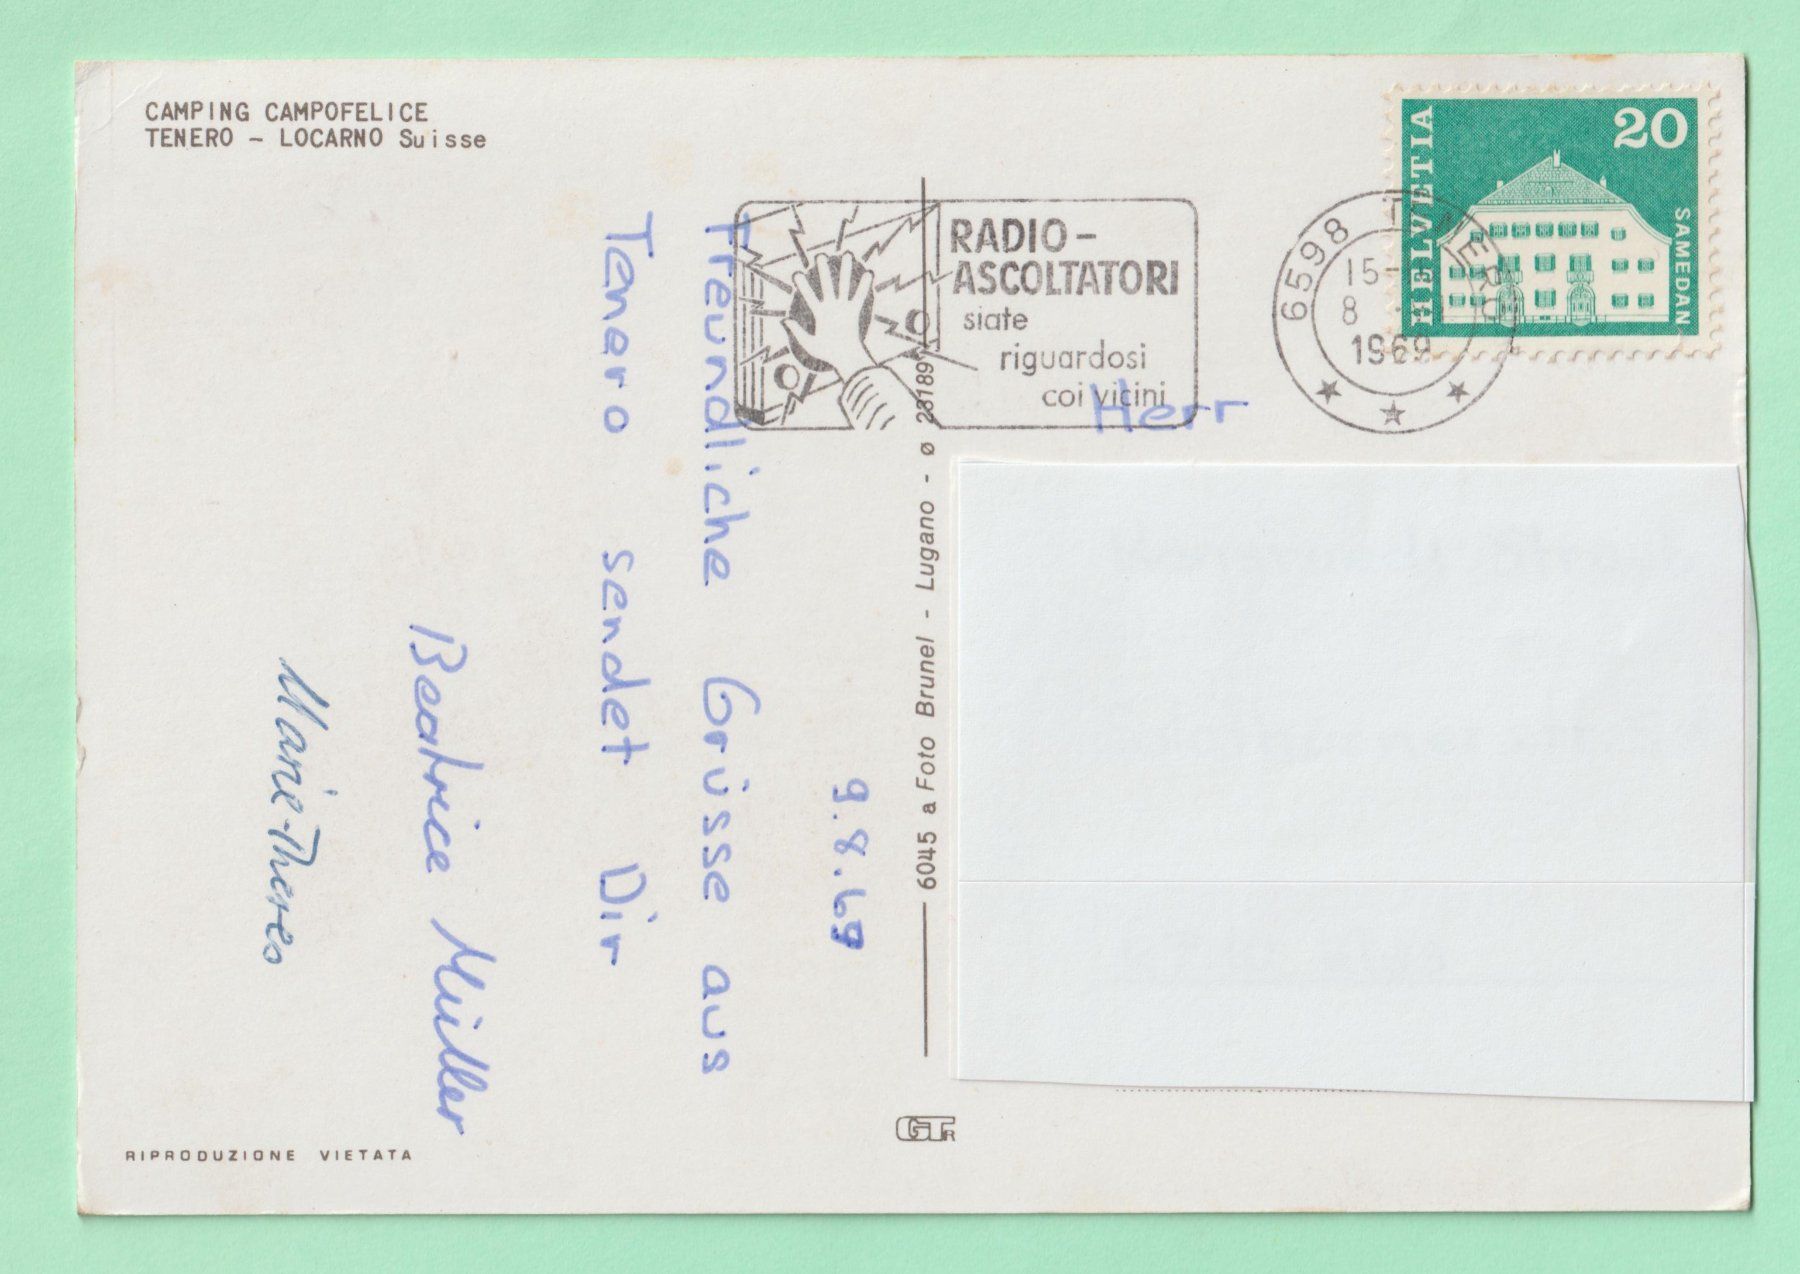 CAMPING CAMPOFELICE
TENERO – LOCARNO Suisse
HELVETIA
20
SAMEDAN
RADIO-
ASCOLTATORI
siate
riguardosi
coi vicini
6598 TENERO
15-
8
1969
Herr
9.8.69
Freundliche Grüsse aus
Tenero sendet Dir
Beatrice Müller
Marie-Theres
6045 a Foto Brunel - Lugano - ø 23189
GTR
RIPRODUZIONE VIETATA